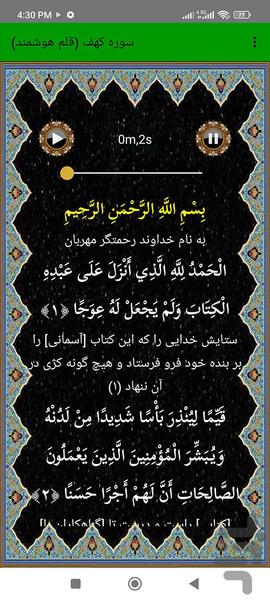 4:30 PM
سوره کهف (قلم هوشمند)
0m,2s
بِسْمِ اللَّهِ الرَّحْمَنِ الرَّحِيمِ
به نام خداوند رحمتگر مهربان
الْحَمْدُ لِلَّهِ الَّذِي أَنْزَلَ عَلَى عَبْدِهِ
الْكِتَابَ وَلَمْ يَجْعَلْ لَهُ عِوَجًا ﴿١﴾
ستایش خدایی را که این کتاب [آسمانی] را
بر بنده خود فرو فرستاد و هیچ گونه کژی در
آن ننهاد (۱)
قَيِّمًا لِيُنْذِرَ بَأْسًا شَدِيدًا مِنْ لَدُنْهُ
وَيُبَشِّرَ الْمُؤْمِنِينَ الَّذِينَ يَعْمَلُونَ
الصَّالِحَاتِ أَنَّ لَهُمْ أَجْرًا حَسَنًا ﴿٢﴾